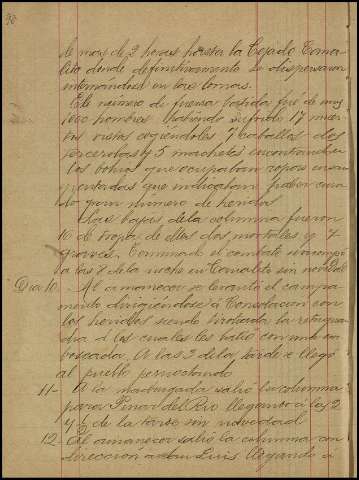 de mas de 3 horas hasta la Ceja de Toma-
lito donde definitivamente se dispersaron
internandose en las lomas.
El número de fuerza batida fué de mas
1000 hombres habiendo sufrido 17 muer-
tos vistos cogiéndoles 7 caballos dos
tercerolas y 5 machetes encontrandose
los bohios que ocupaban ropas ensan-
grentadas que indicaban haber cau-
sado gran número de heridos
Las bajas de la columna fueron
10 de tropa de ellos dos mortales y 7
graves. Terminado el combate
a las 7 de la noche en sin novedad
Dia 10 Al amanecer se levantó el campa-
mento dirigiéndose á Consolacion con
los heridos siendo tiroteada la retaguar-
dia á los cuales les batió con una em-
boscada. A las 3 de la tarde llegó
al pueblo pernoctando
11- A la madrugada salió la columna
para Pinar del Rio llegando á las 2
y ½ de la tarde sin novedad
12- Al amanecer salió la columna con
direccion a San Luis llegando á